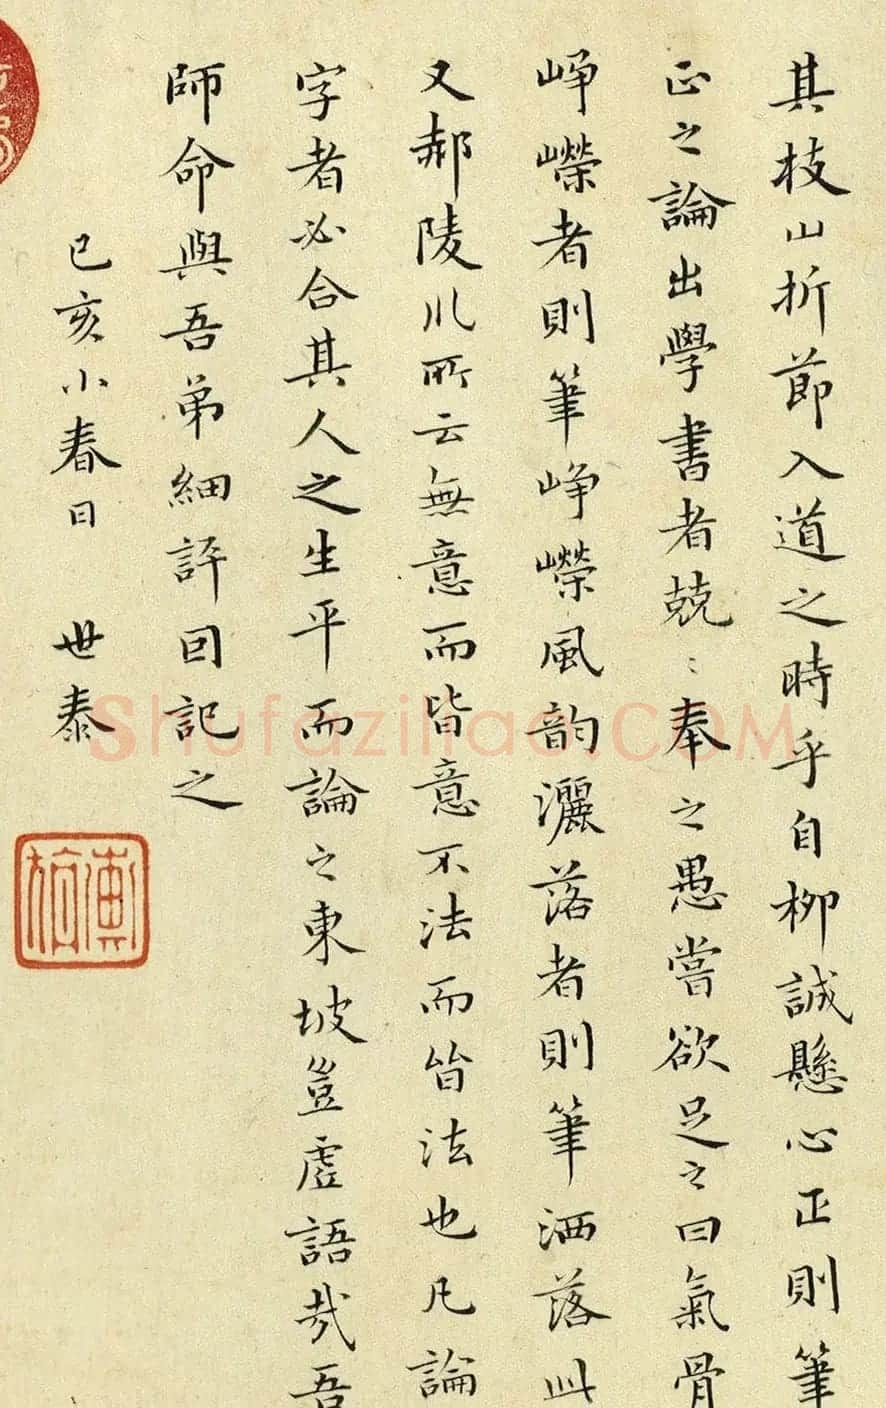 其枝山折節入道之時乎自柳誠懸心正則筆
正之論出學書者兢〻奉之愚嘗欲足之曰氣骨
崢嶸者則筆崢嶸風韵灑落者則筆洒落此
又郝陵川所云無意而皆意不法而皆法也凡論
字者必合其人之生平而論之東坡豈虛語哉吾
師命與吾弟細評回記之
己亥小春日 世泰
shufaziliao.COM